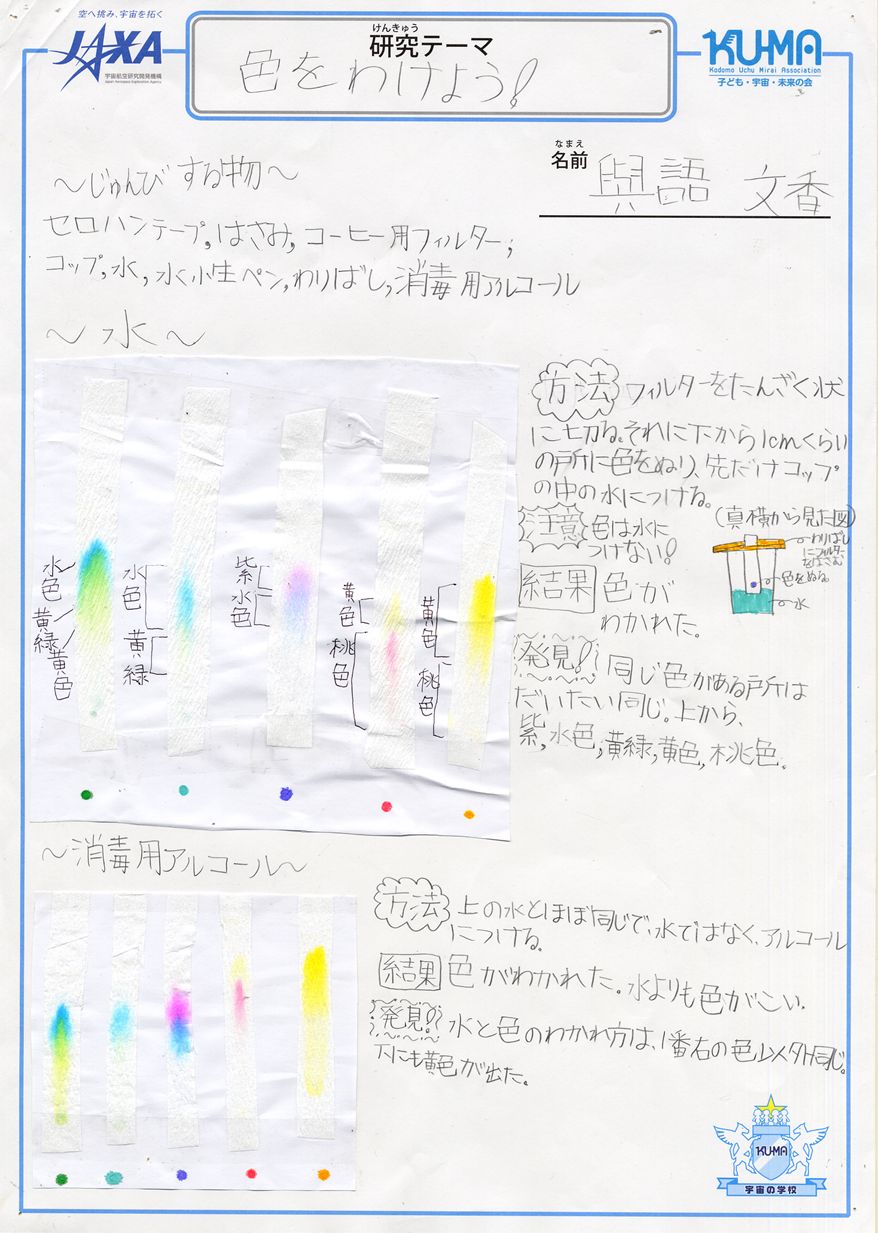 空へ挑み、宇宙を拓く
JAXA
宇宙航空研究開発機構
Japan Aerospace Exploration Agency
けんきゅう
研究テーマ
色をわけよう!
KU-MA
Kodomo Uchu Mirai Association
子ども・宇宙・未来の会
なまえ
名前 與語 文香
～じゅんびする物～
セロハンテープ,はさみ,コーヒー用フィルター,
コップ,水,水性ペン,わりばし,消毒用アルコール
～水～
水色
黄緑
黄色
水色
黄緑
紫
水色
黄色
桃色
黄色
桃色
方法 フィルターをたんざく状
に切る。それに下から1cmくらい
の所に色をぬり、先だけコップ
の中の水につける。
注意 色は水に
つけない!
(真横から見た図)
わりばし
にフィルター
をはさむ
色をぬる
水
結果 色が
わかれた。
発見! 同じ色がある所は
だいたい同じ。上から、
紫,水色,黄緑,黄色,桃色。
～消毒用アルコール～
方法 上の水とほぼ同じで、水ではなく、アルコール
につける。
結果 色がわかれた。水よりも色がこい。
発見! 水と色のわかれ方は、1番右の色以外同じ。
下にも黄色が出た。
KU-MA
宇宙の学校